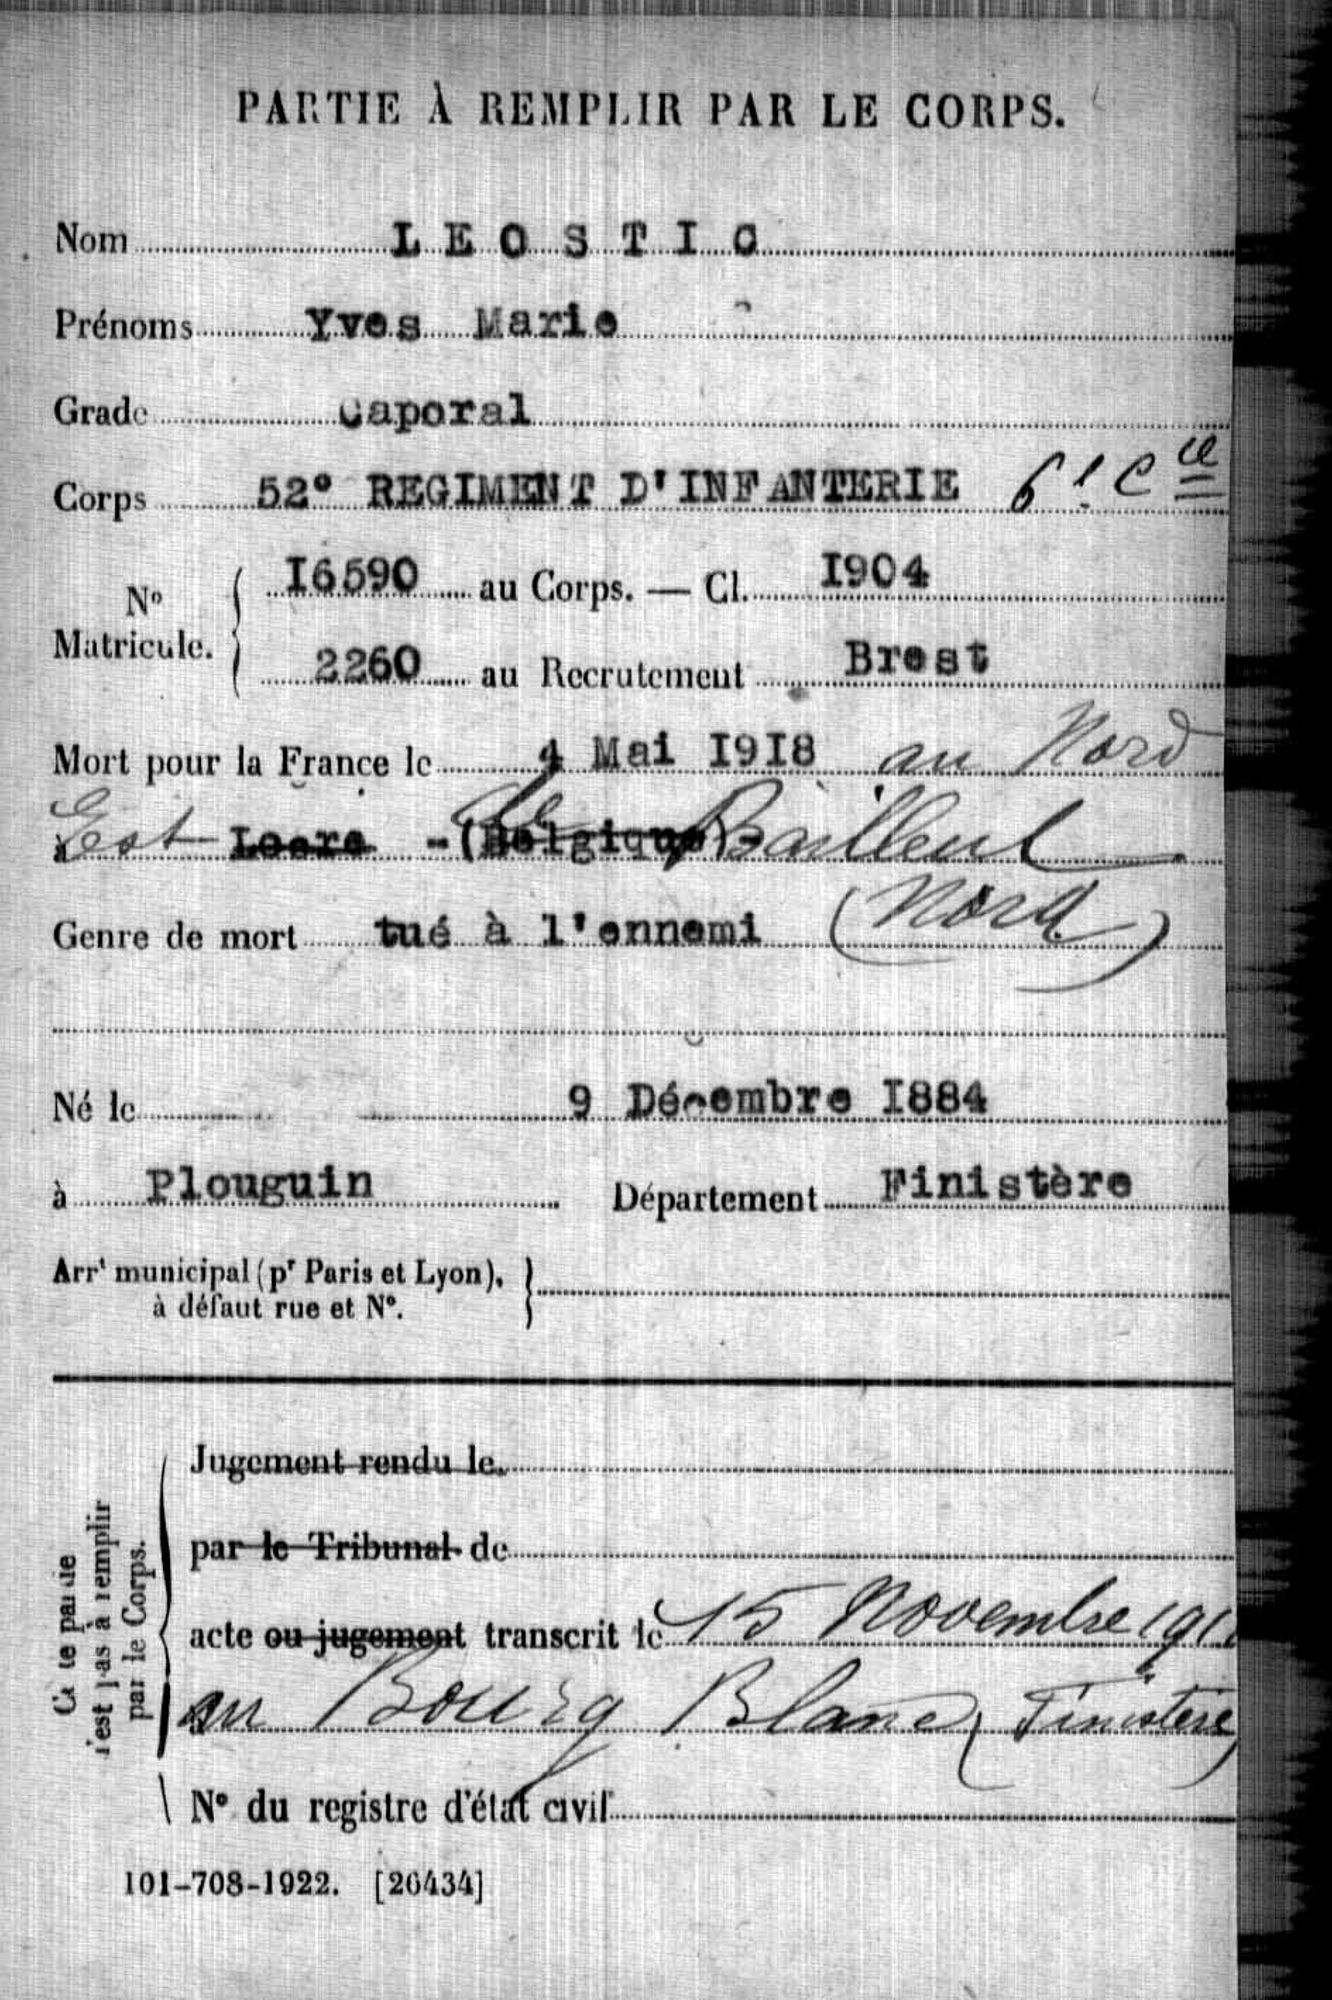 PARTIE À REMPLIR PAR LE CORPS.
Nom LEOSTIC
Prénoms Yves Marie
Grade Caporal
Corps 52° REGIMENT D'INFANTERIE 6e Cie
No Matricule. I6590 au Corps. — Cl. I904
2260 au Recrutement Brest
Mort pour la France le 4 Mai I9I8 au Nord
à Est Locre -(Belgique)- de Bailleul
Genre de mort tué à l'ennemi (Nord)
Né le 9 Décembre I884
à Plouguin Département Finistère
Arrt municipal (pr Paris et Lyon),
à défaut rue et N°.
Cette partie
n'est pas à remplir
par le Corps.
Jugement rendu le
par le Tribunal de
acte ou jugement transcrit le 15 Novembre
au Bourg Blanc (Finistère)
N° du registre d'état civil
101-708-1922. [26434]